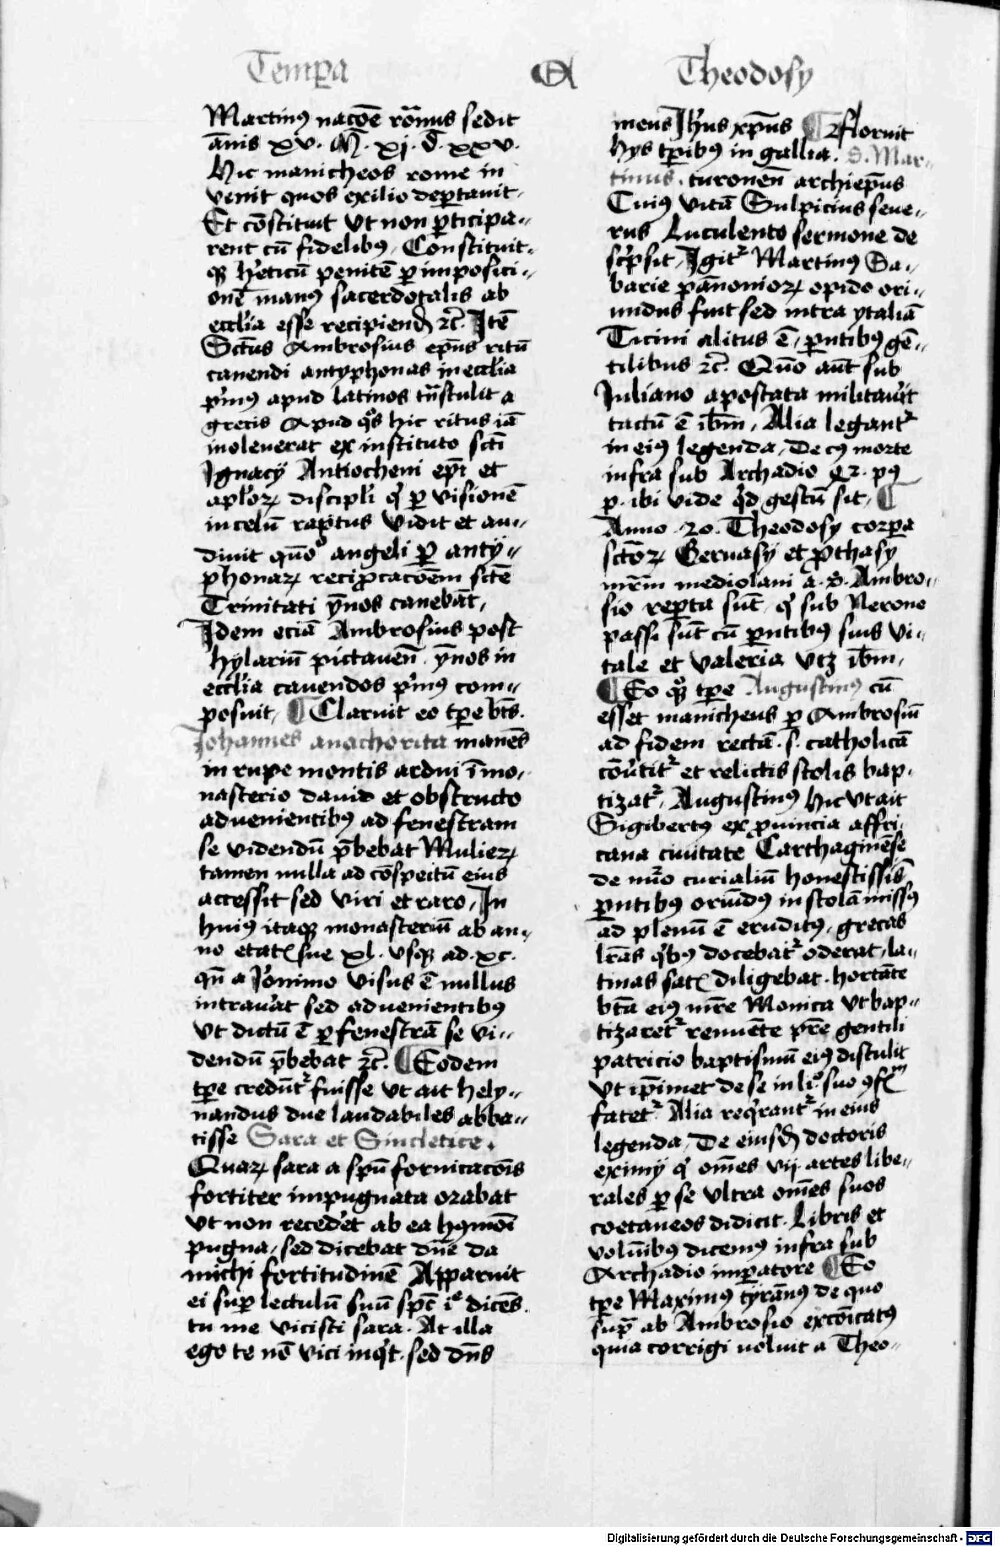 Tempa
Theodosy
Martinus nacõe rom̃nus sedit
ãnis xv. M̃. xj. d̃. xxv.
Hic manicheos rome in
venit quos exilio deptauit.
Et cõstituit Vt non pticipa-
rent cũ fidelibus, Constituit-
qꝫ h̓eticũ penitẽ p imposici-
onẽ manus sacerdotalis ab
eccl̓ia esse recipiend̃ ⁊c̃. Itẽ
Sctũs Ambrosius ep̃us ritũ
canendi antyphonas in eccl̓ia
p̓mus apud latinos tñstulit a
grecis Apud q̓s hic ritus iã
inoleuerat ex instituto scti
Ignacij Antiocheni ep̃i et
apl̓oꝝ discipl̓i q̓ p visionẽ
in celũ raptus vidit et au-
diuit quõ angeli p anty-
phonaꝝ recip̱cacõem sctẽ
Trinitati ỹnos canebãt,
Idem eciã Ambrosius post
hylariũ pictauen̄. ỹnos in
eccl̓ia canendos p̓mus com-
posuit, Claruit eo tp̱e bt̃s.
Johannes anachorita manẽs
in rupe montis ardui ĩ mo-
nasterio dauid et obstructo
aduenientibus ad fenestram
se videndũ p̃bebat Mulieꝝ
tamen nulla ad cõspectũ eius
accessit sed viri et raro, In
huius itaqꝫ monasteriũ ab an-
no etatis sue xl. vsqꝫ ad. xc.
qũ a Jõnimo visus ẽ nullus
intrau̓at sed aduenientibus
Vt dictũ ẽ p fenestrã se vi-
dendũ p̃bebat ⁊c̃. Eodem
tp̱e credũtʳ fuisse vt ait hely-
nandus due laudabiles abba-
tisse Sara et Sincletice.
Quaꝝ sara a spũ fornicacõis
fortiter impugnata orabat
Vt non reced̓et ab ea hꝰmõi
pugna, sed dicebat dñe da
michi fortitudinẽ Apparuit
ei sup lectulũ suũ spc̃ iᵉ dicẽs.
tu me vicisti sara. At illa
ego te nõ vici inq̓t. sed dñs
meus Jh̓us xp̃us floruit
hys tp̱ibus in gallia. S. Mar-
tinus. turonen̄ archiep̃us
Cuius vitã Sulpicius seue-
rus Luculento sermone de
sc̓psit, Igitʳ Martinus Sa-
barie pãnonioꝝ opido ori-
undus fuit sed intra ytaliã
Ticini alitus ẽ, pn̄tibus gẽ-
tilibus ⁊c̃. Quõ aũt sub
Juliano apostata militau̓it
tactũ ẽ ibm̃, Alia legantʳ
in eius legenda, De cꝰ morte
infra sub Archadio
p. ibi vide q̓d gestũ sit,
Anno. 20. Theodosy corpa
sctõꝝ Geruasij et p̱thasij
m̃rm̃ mediolani a. S. Ambro-
sio repta sũt, q̓ sub Nerone
passi sũt cũ pn̄tibus suis Vi-
tale et valeria vtꝫ ibm̃,
Eo qꝫ tp̱e Augustinus cũ
esset manicheus p Ambrosiũ
ad fidem rectã. s. catholicã
cõu̓titʳ et relictis scolis bap-
tizatʳ, Augustinus hic vt ait
Sigibertus ex p̱uincia affri-
cana ciuitate Carthaginẽse
de nũo curialiũ honestissis̃
pn̄tibus oriũdus in scolã missus
ad plenũ ẽ eruditus, grecas
lr̃as q̓bus docebatʳ oderat, la-
tinas satis diligebat. hortãte
btã eius mr̃e Monica vt bap-
tizaretʳ renuẽte pr̃e gentili
patricio baptismũ eius distulit
Vt ip̃imet de se in liᵒ suo 9f.
fatetʳ. Alia req̓rantʳ in eius
legenda, De eiusd̃ doctoris
eximij q̓ om̃es vij artes libe-
rales p se vltra om̃es suos
coetaneos didicit. Libris et
volũibus dicemus infra sub
Archadio impatore Eo
tp̱e Maximus tyrãnus de quo
sup̱ ab Ambrosio excõicatus
quia corrigi noluit a Theo-
Digitalisierung gefördert durch die Deutsche Forschungsgemeinschaft - DFG